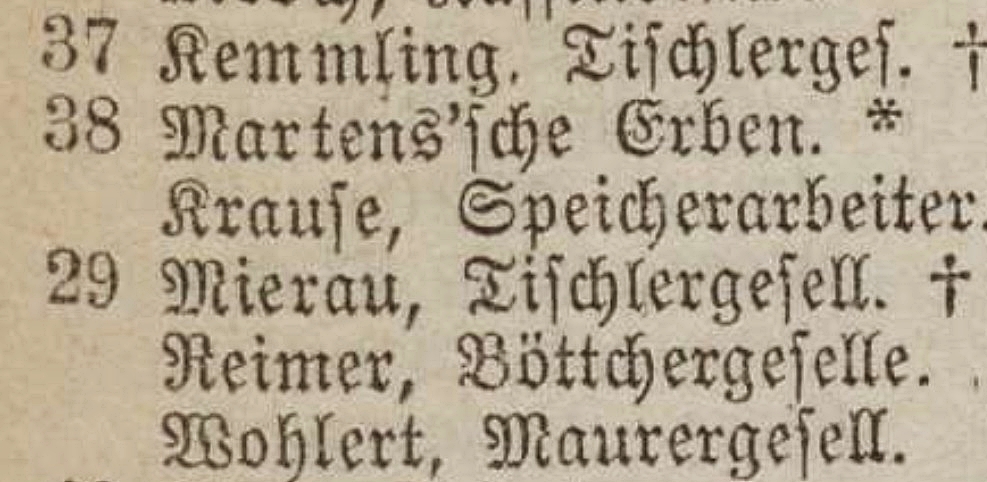 37 Kemmling. Tiſchlergeſ. †
38 Martens'ſche Erben. *
Krauſe, Speicherarbeiter.
29 Mierau, Tiſchlergeſell. †
Reimer, Böttchergeſelle.
Wohlert, Maurergeſell.